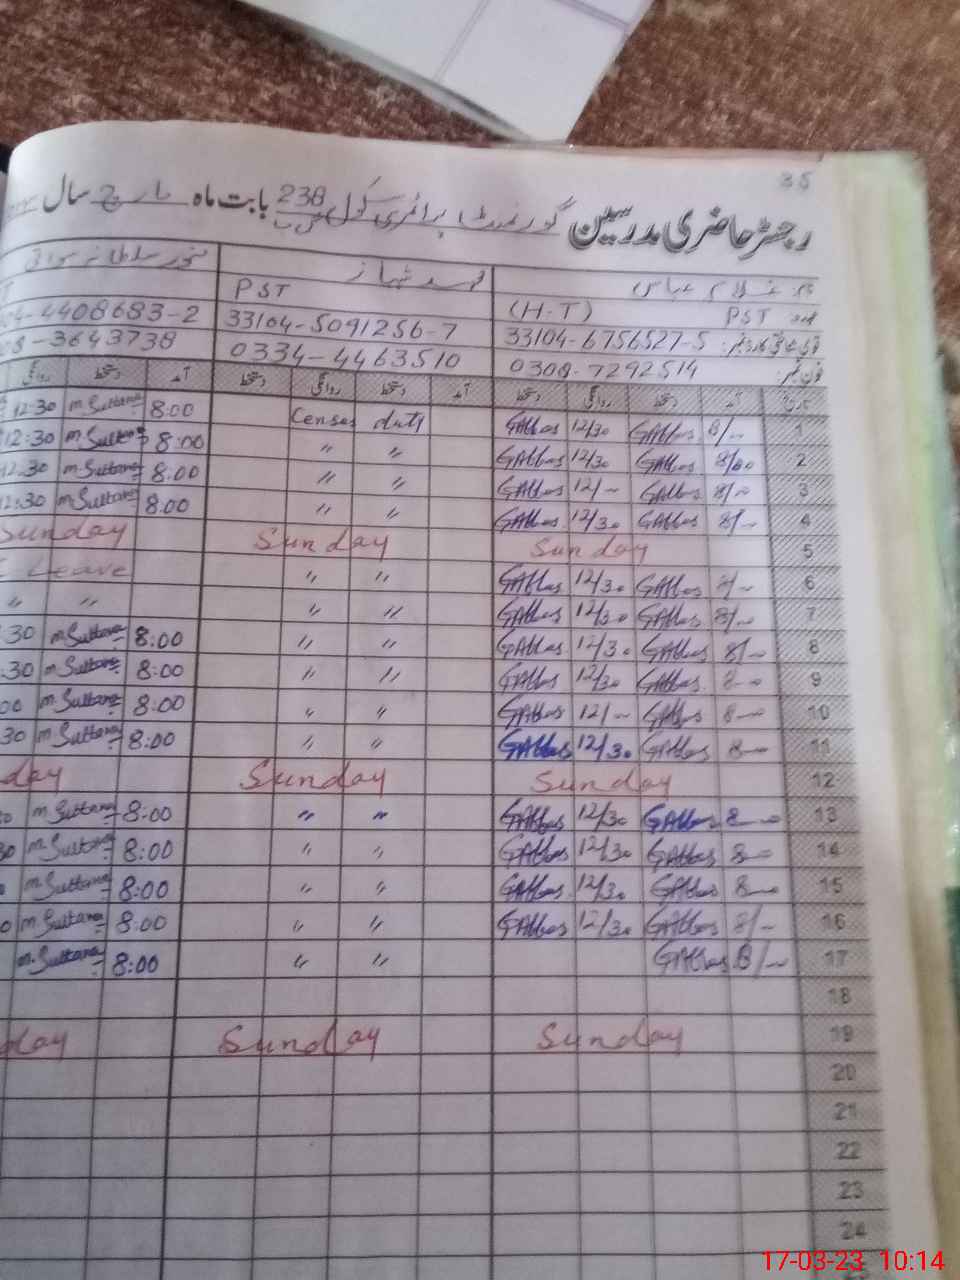 35
رجسٹر حاضری مدرسین گورنمنٹ پرائمری سکول 238 بابت ماہ مارچ سال
نام غلام عباس
(H-T) PST
PST
33104-6756527-5
33104-5091256-7
4408683-2
0308-7292514
0334-4463510
3643738
تاریخ آمد دستخط روانگی دستخط آمد دستخط روانگی دستخط آمد دستخط روانگی
1 8/- GAbbas 12/30 GAbbas Census duty 8:00 m.Sultana 12:30
2 8/00 GAbbas 12/30 GAbbas " " 8:00 m.Sultana 12:30
3 8/- GAbbas 12/- GAbbas " " 8:00 m.Sultana 12.30
4 8/- GAbbas 12/30 GAbbas " " 8:00 m.Sultana 12:30
5 Sunday Sunday Sunday
6 8/- GAbbas 12/30 GAbbas " " Leave
7 8/- GAbbas 12/30 GAbbas " " " "
8 8/- GAbbas 12/30 GAbbas " " 8:00 m.Sultana :30
9 8- GAbbas 12/30 GAbbas " " 8:00 m.Sultana :30
10 8- GAbbas 12/- GAbbas " " 8:00 m.Sultana 00
11 8- GAbbas 12/30 GAbbas " " 8:00 m.Sultana 30
12 Sunday Sunday day
13 8- GAbbas 12/30 GAbbas " " 8:00 m.Sultana 0
14 8- GAbbas 12/30 GAbbas " " 8:00 m.Sultana 30
15 8- GAbbas 12/30 GAbbas " " 8:00 m.Sultana 0
16 8/- GAbbas 12/30 GAbbas " " 8:00 m.Sultana 0
17 8/- GAbbas " " 8:00 m.Sultana
18
19 Sunday Sunday day
20
21
22
23
24
17-03-23 10:14